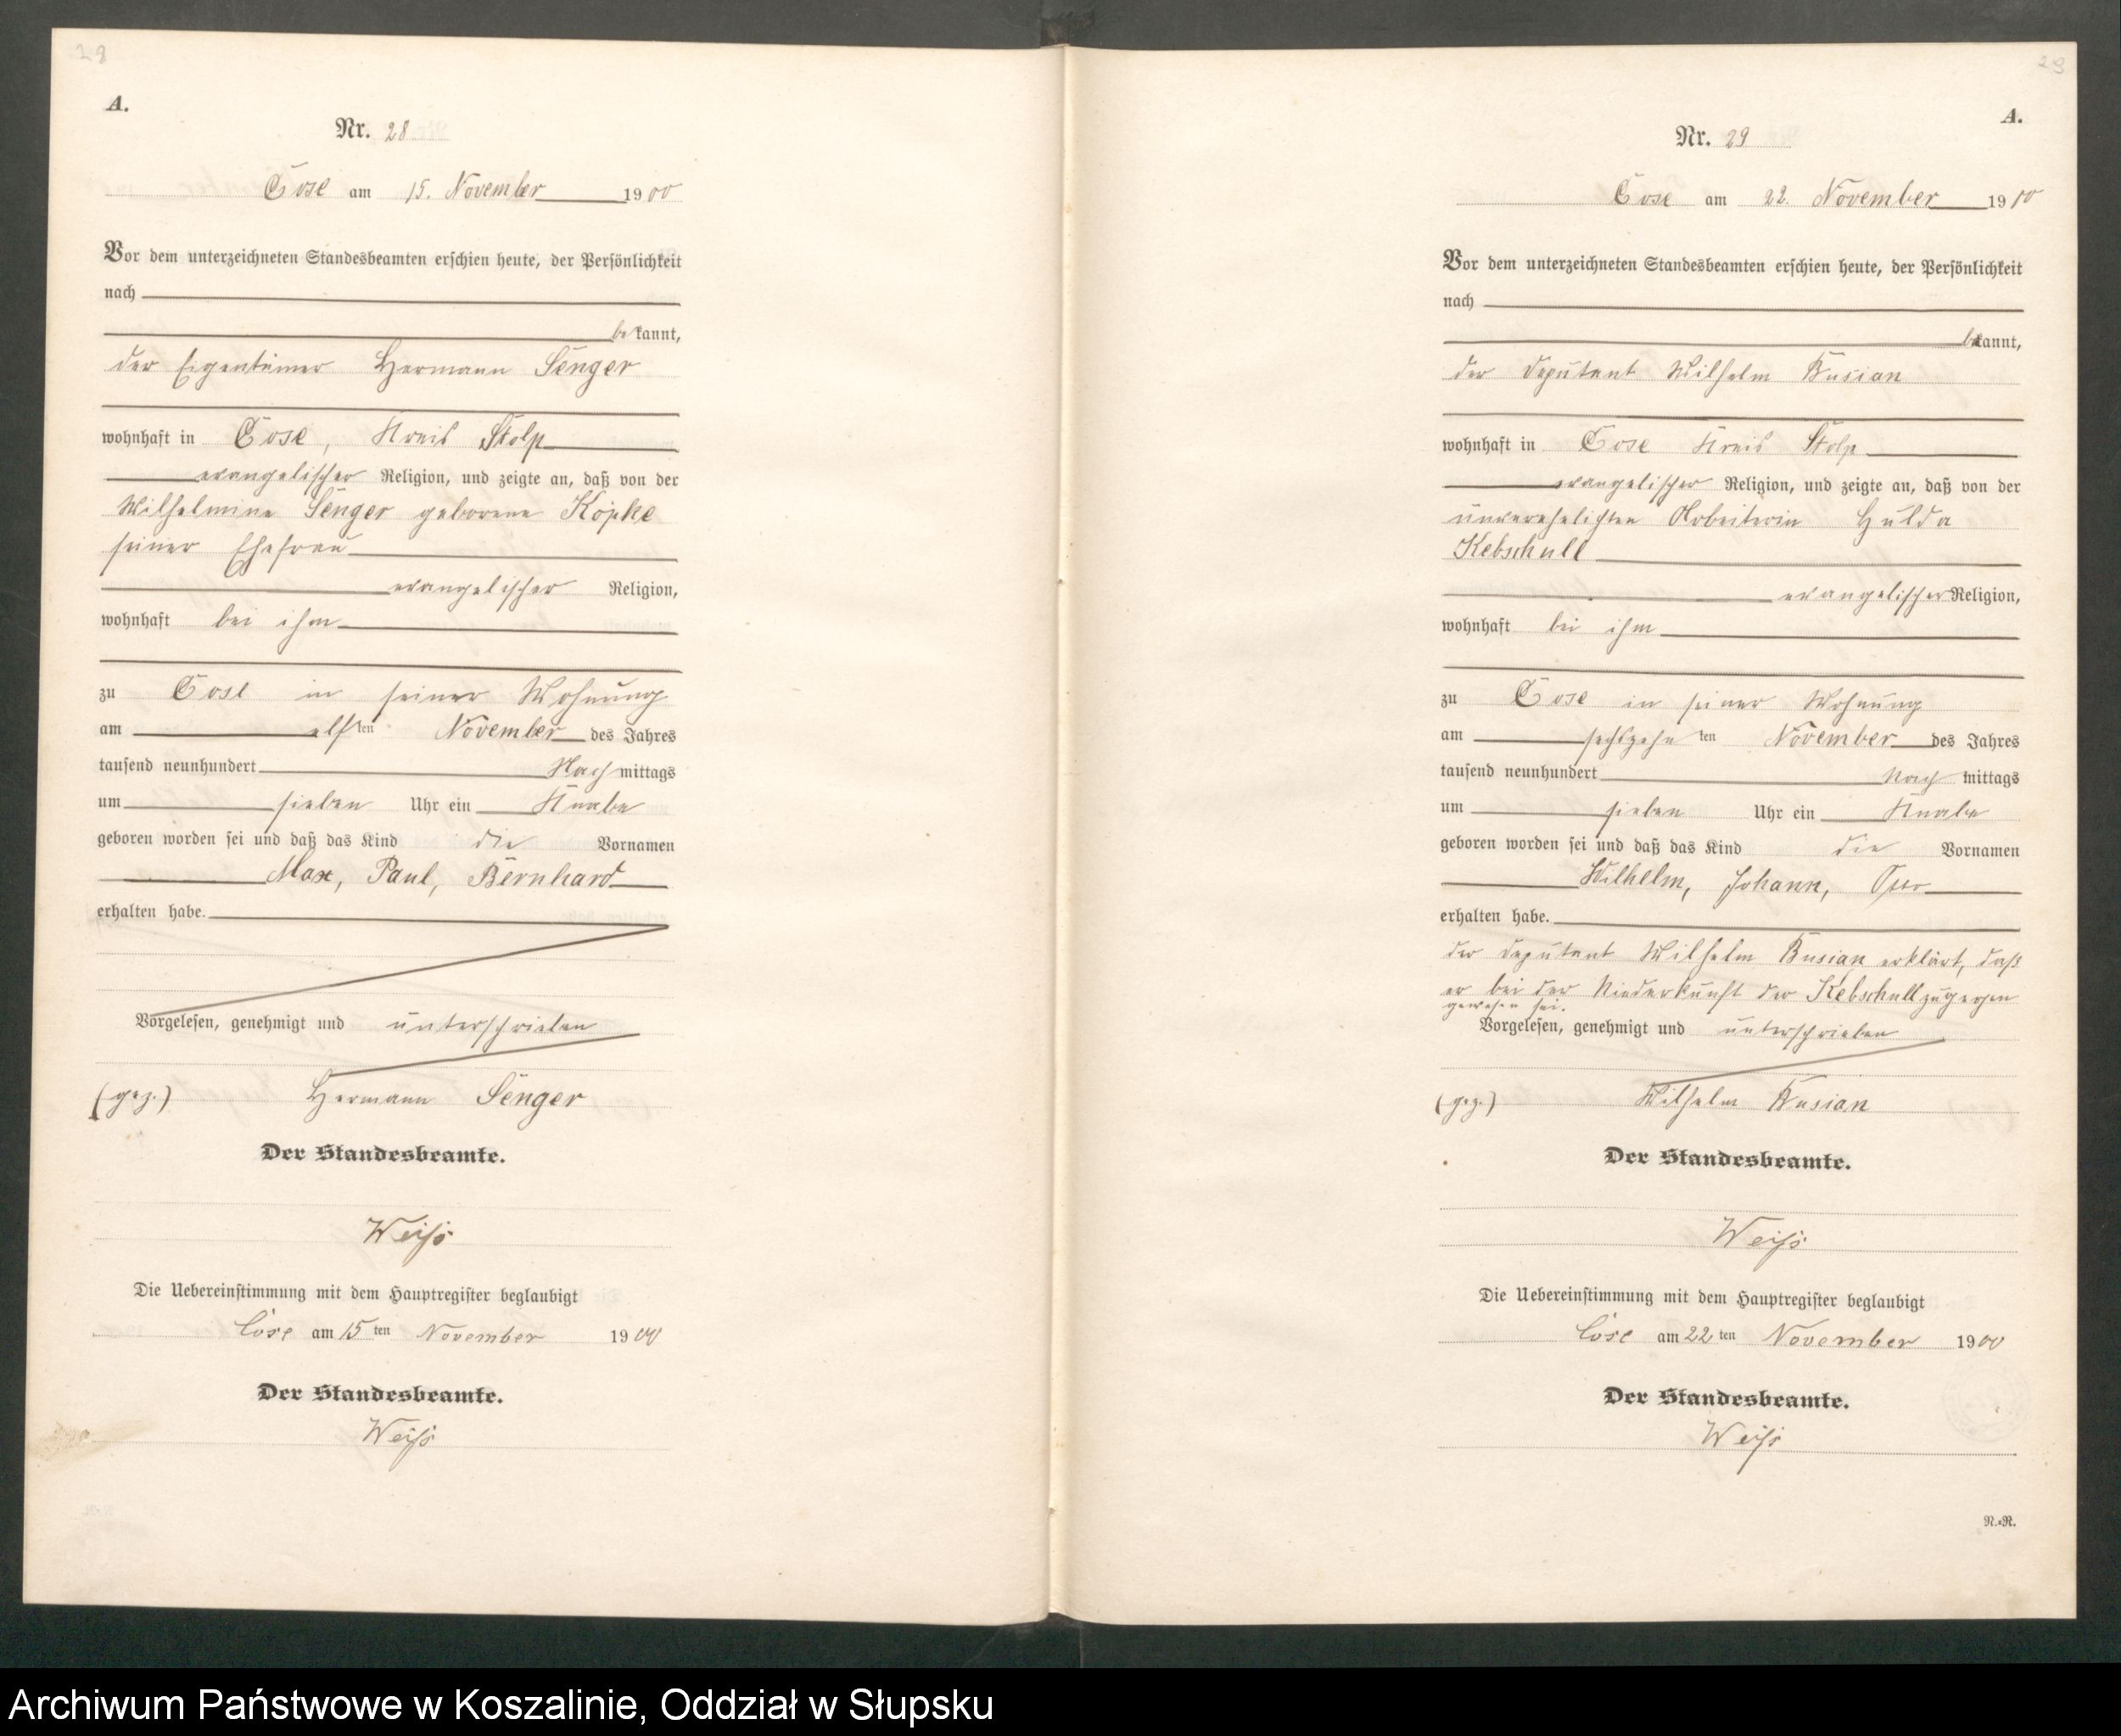 28
A.
Nr. 28
Cose am 15. November 1900
Vor dem unterzeichneten Standesbeamten erschien heute, der Persönlichkeit
nach
bekannt,
der Eigentümer Hermann Senger
wohnhaft in Cose, Kreis Stolp
evangelischer Religion, und zeigte an, daß von der
Wilhelmine Senger geborene Köpke
seiner Ehefrau
evangelischer Religion,
wohnhaft bei ihm
zu Cose in seiner Wohnung
am elften November des Jahres
tausend neunhundert Nachmittags
um sieben Uhr ein Knabe
geboren worden sei und daß das Kind die Vornamen
Max, Paul, Bernhard
erhalten habe.
Vorgelesen, genehmigt und unterschrieben
(gez.) Hermann Senger
Der Standesbeamte.
Weiß
Die Uebereinstimmung mit dem Hauptregister beglaubigt
Cose am 15ten November 1900
Der Standesbeamte.
Weiß
29
A.
Nr. 29
Cose am 22. November 1900
Vor dem unterzeichneten Standesbeamten erschien heute, der Persönlichkeit
nach
bekannt,
der Deputant Wilhelm Busian
wohnhaft in Cose Kreis Stolp
evangelischer Religion, und zeigte an, daß von der
unverehelichten Arbeiterin Hulda
Kebschull
evangelischer Religion,
wohnhaft bei ihm
zu Cose in seiner Wohnung
am sechszehnten November des Jahres
tausend neunhundert Nachmittags
um sieben Uhr ein Knabe
geboren worden sei und daß das Kind die Vornamen
Wilhelm, Johann, Otto
erhalten habe.
der Deputant Wilhelm Busian erklärt, daß
er bei der Niederkunft der Kebschull zugegen
gewesen sei.
Vorgelesen, genehmigt und unterschrieben
(gez.) Wilhelm Busian
Der Standesbeamte.
Weiß
Die Uebereinstimmung mit dem Hauptregister beglaubigt
Cose am 22ten November 1900
Der Standesbeamte.
Weiß
N.=R.
Archiwum Państwowe w Koszalinie, Oddział w Słupsku